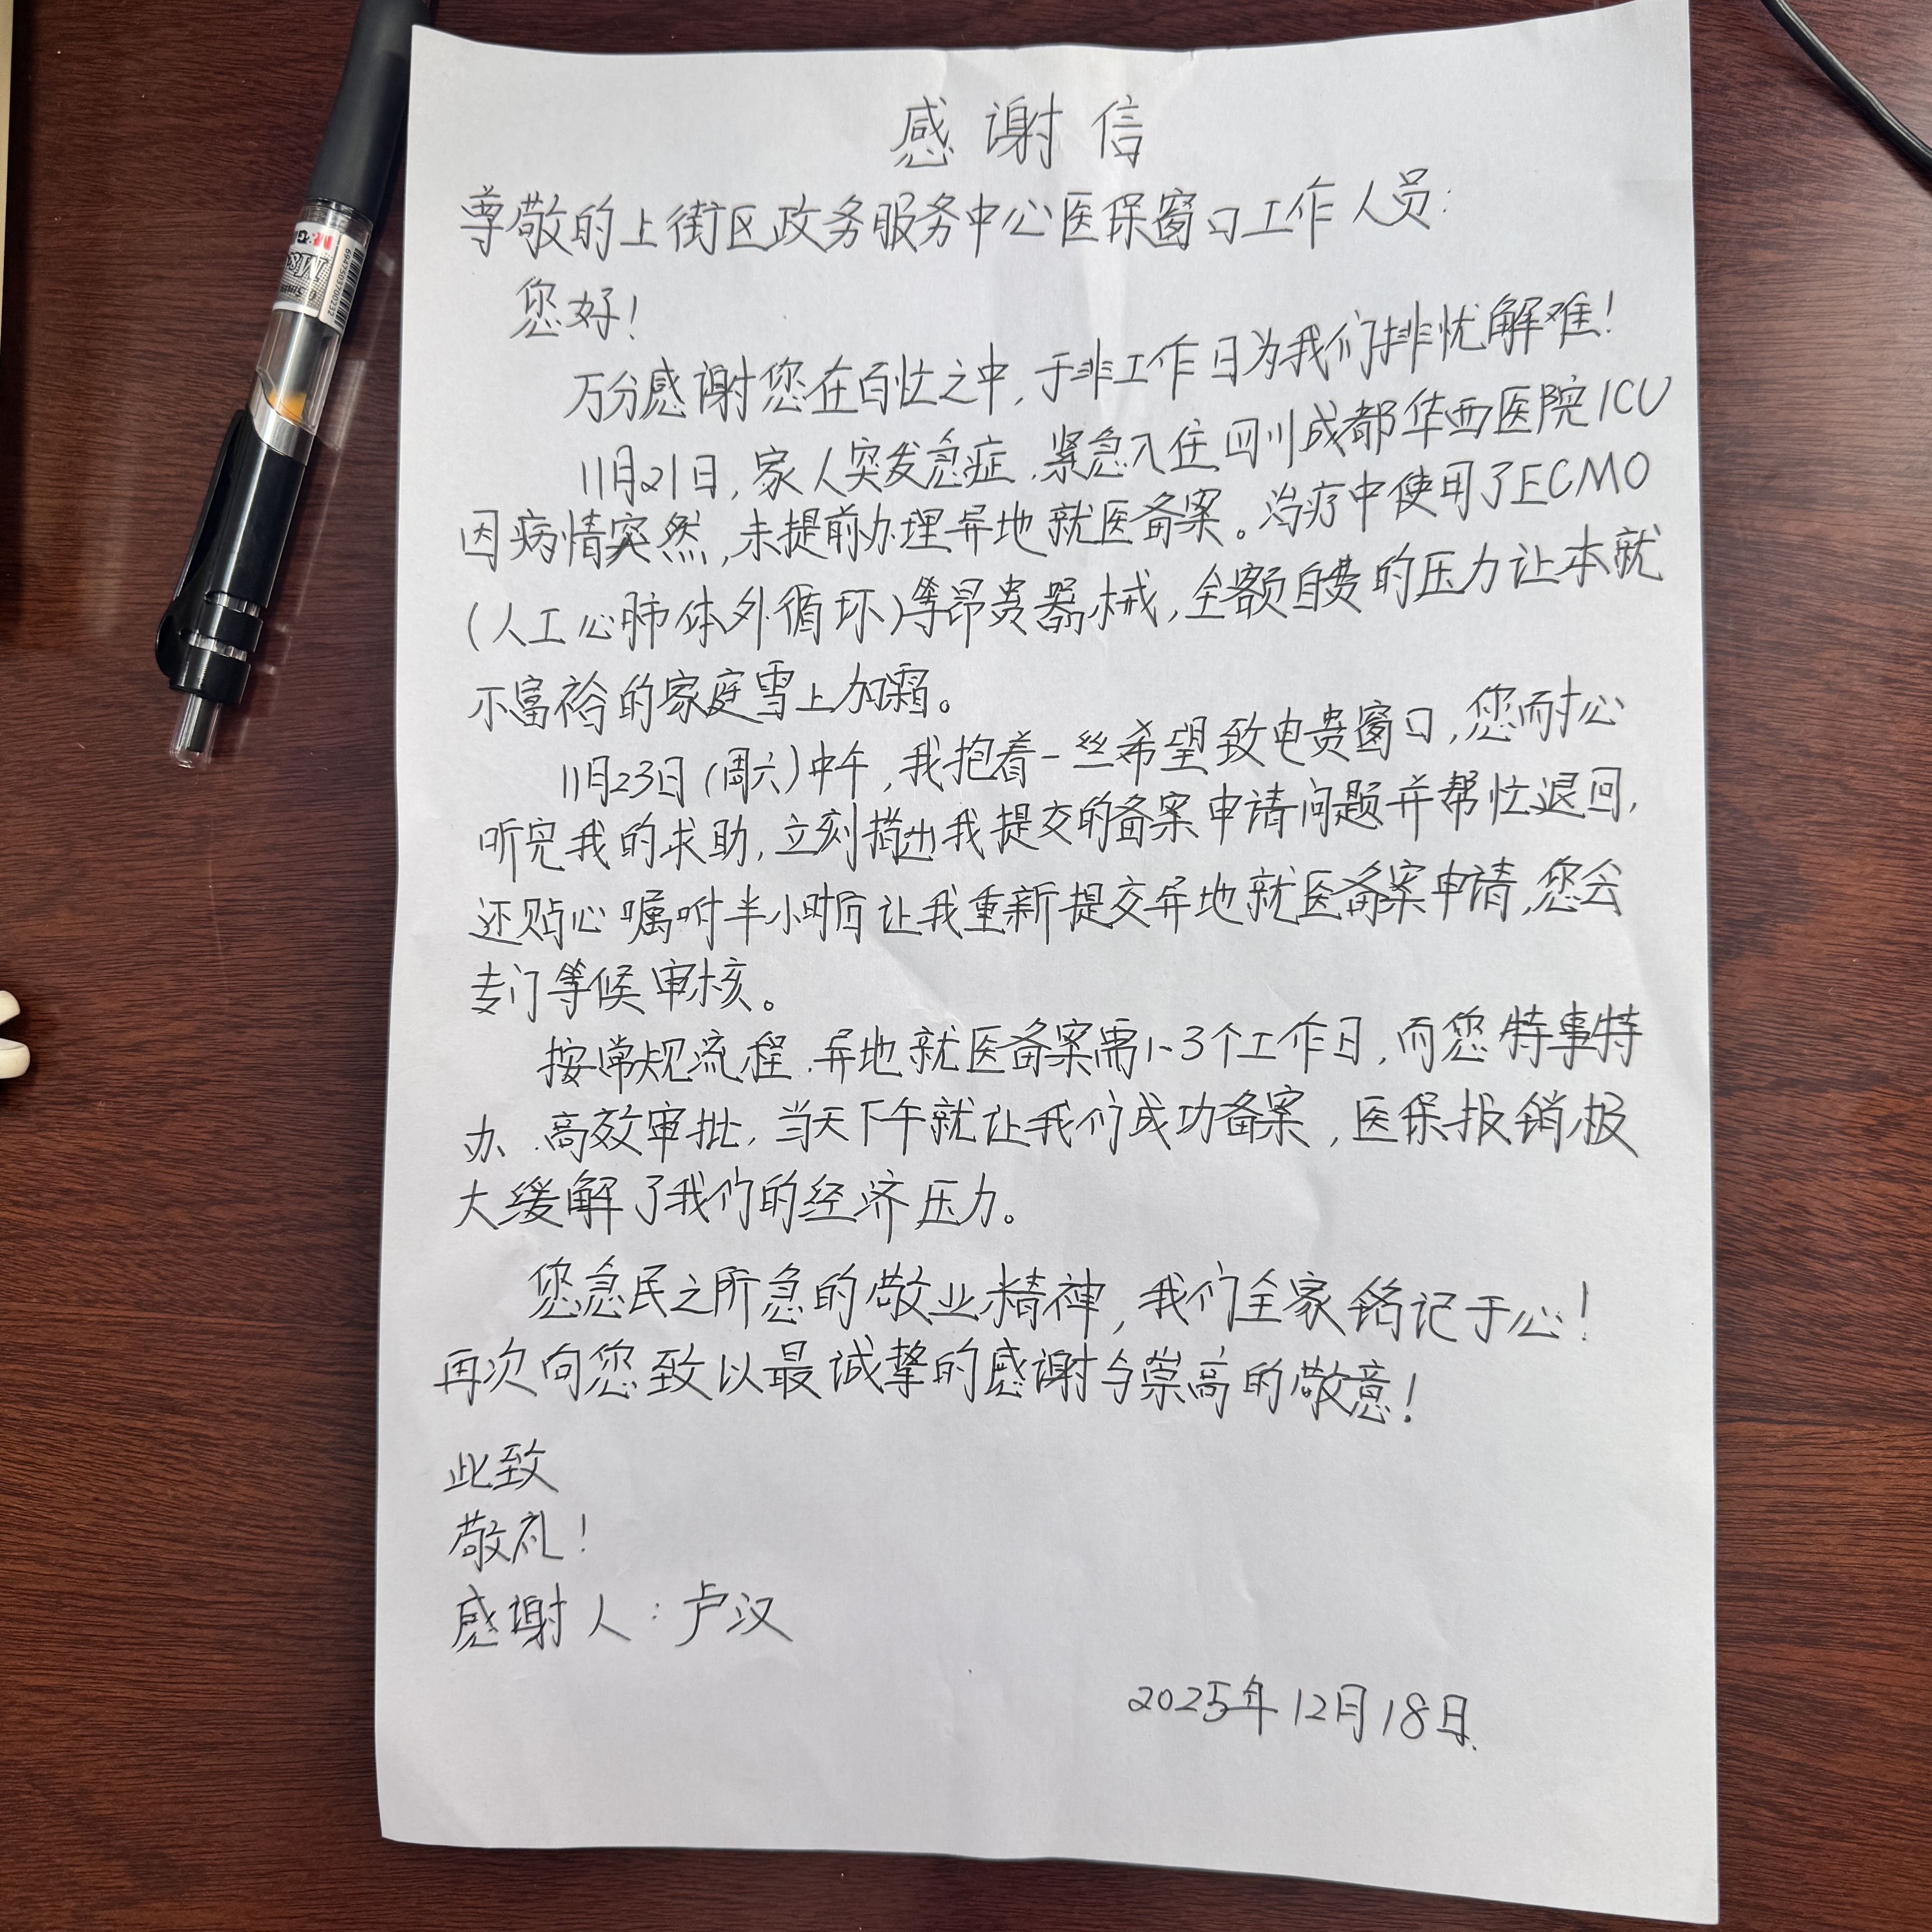 感谢信
尊敬的上街区政务服务中心医保窗口工作人员:
您好!
万分感谢您在百忙之中,于非工作日为我们排忧解难!
11月21日,家人突发急症,紧急入住四川成都华西医院ICU
因病情突然,未提前办理异地就医备案。治疗中使用了ECMO
(人工心肺体外循环)等昂贵器械,全额自费的压力让本就
不富裕的家庭雪上加霜。
11月23日(周六)中午,我抱着一丝希望致电贵窗口,您耐心
听完我的求助,立刻指出我提交的备案申请问题并帮忙退回,
还贴心嘱咐半小时后让我重新提交异地就医备案申请,您会
专门等候审核。
按常规流程,异地就医备案需1-3个工作日,而您特事特
办、高效审批,当天下午就让我们成功备案,医保报销极
大缓解了我们的经济压力。
您急民之所急的敬业精神,我们全家铭记于心!
再次向您致以最诚挚的感谢与崇高的敬意!
此致
敬礼!
感谢人:卢汉
2025年12月18日.
M&G
0.5mm